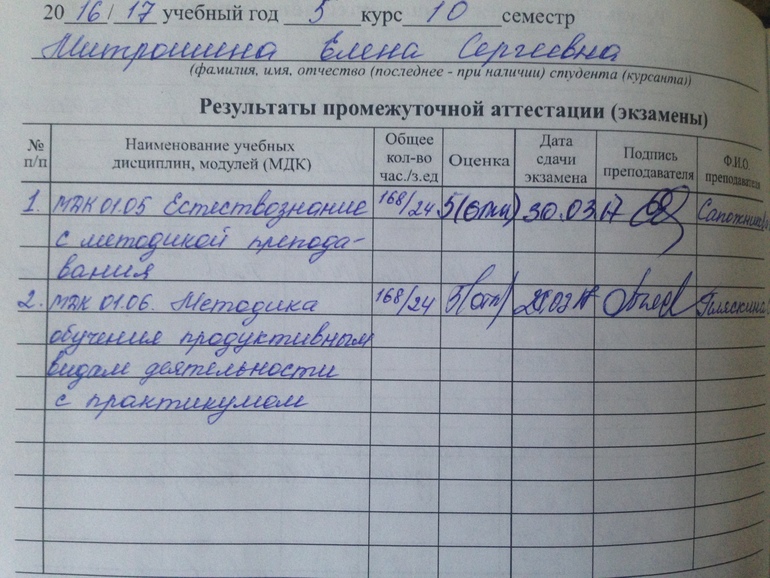 2016/17 учебный год 5 курс 10 семестр
Митрошина Елена Сергеевна
(фамилия, имя, отчество (последнее - при наличии) студента (курсанта))
Результаты промежуточной аттестации (экзамены)
№ п/п Наименование учебных дисциплин, модулей (МДК) Общее кол-во час./з.ед Оценка Дата сдачи экзамена Подпись преподавателя Ф.И.О преподавателя
1. МДК 01.05 Естествознание 168/24 5(отл) 30.03.17
с методикой препода-
вания
2. МДК 01.06. Методика 168/24 5(отл)
обучения продуктивным
видам деятельности
с практикумом